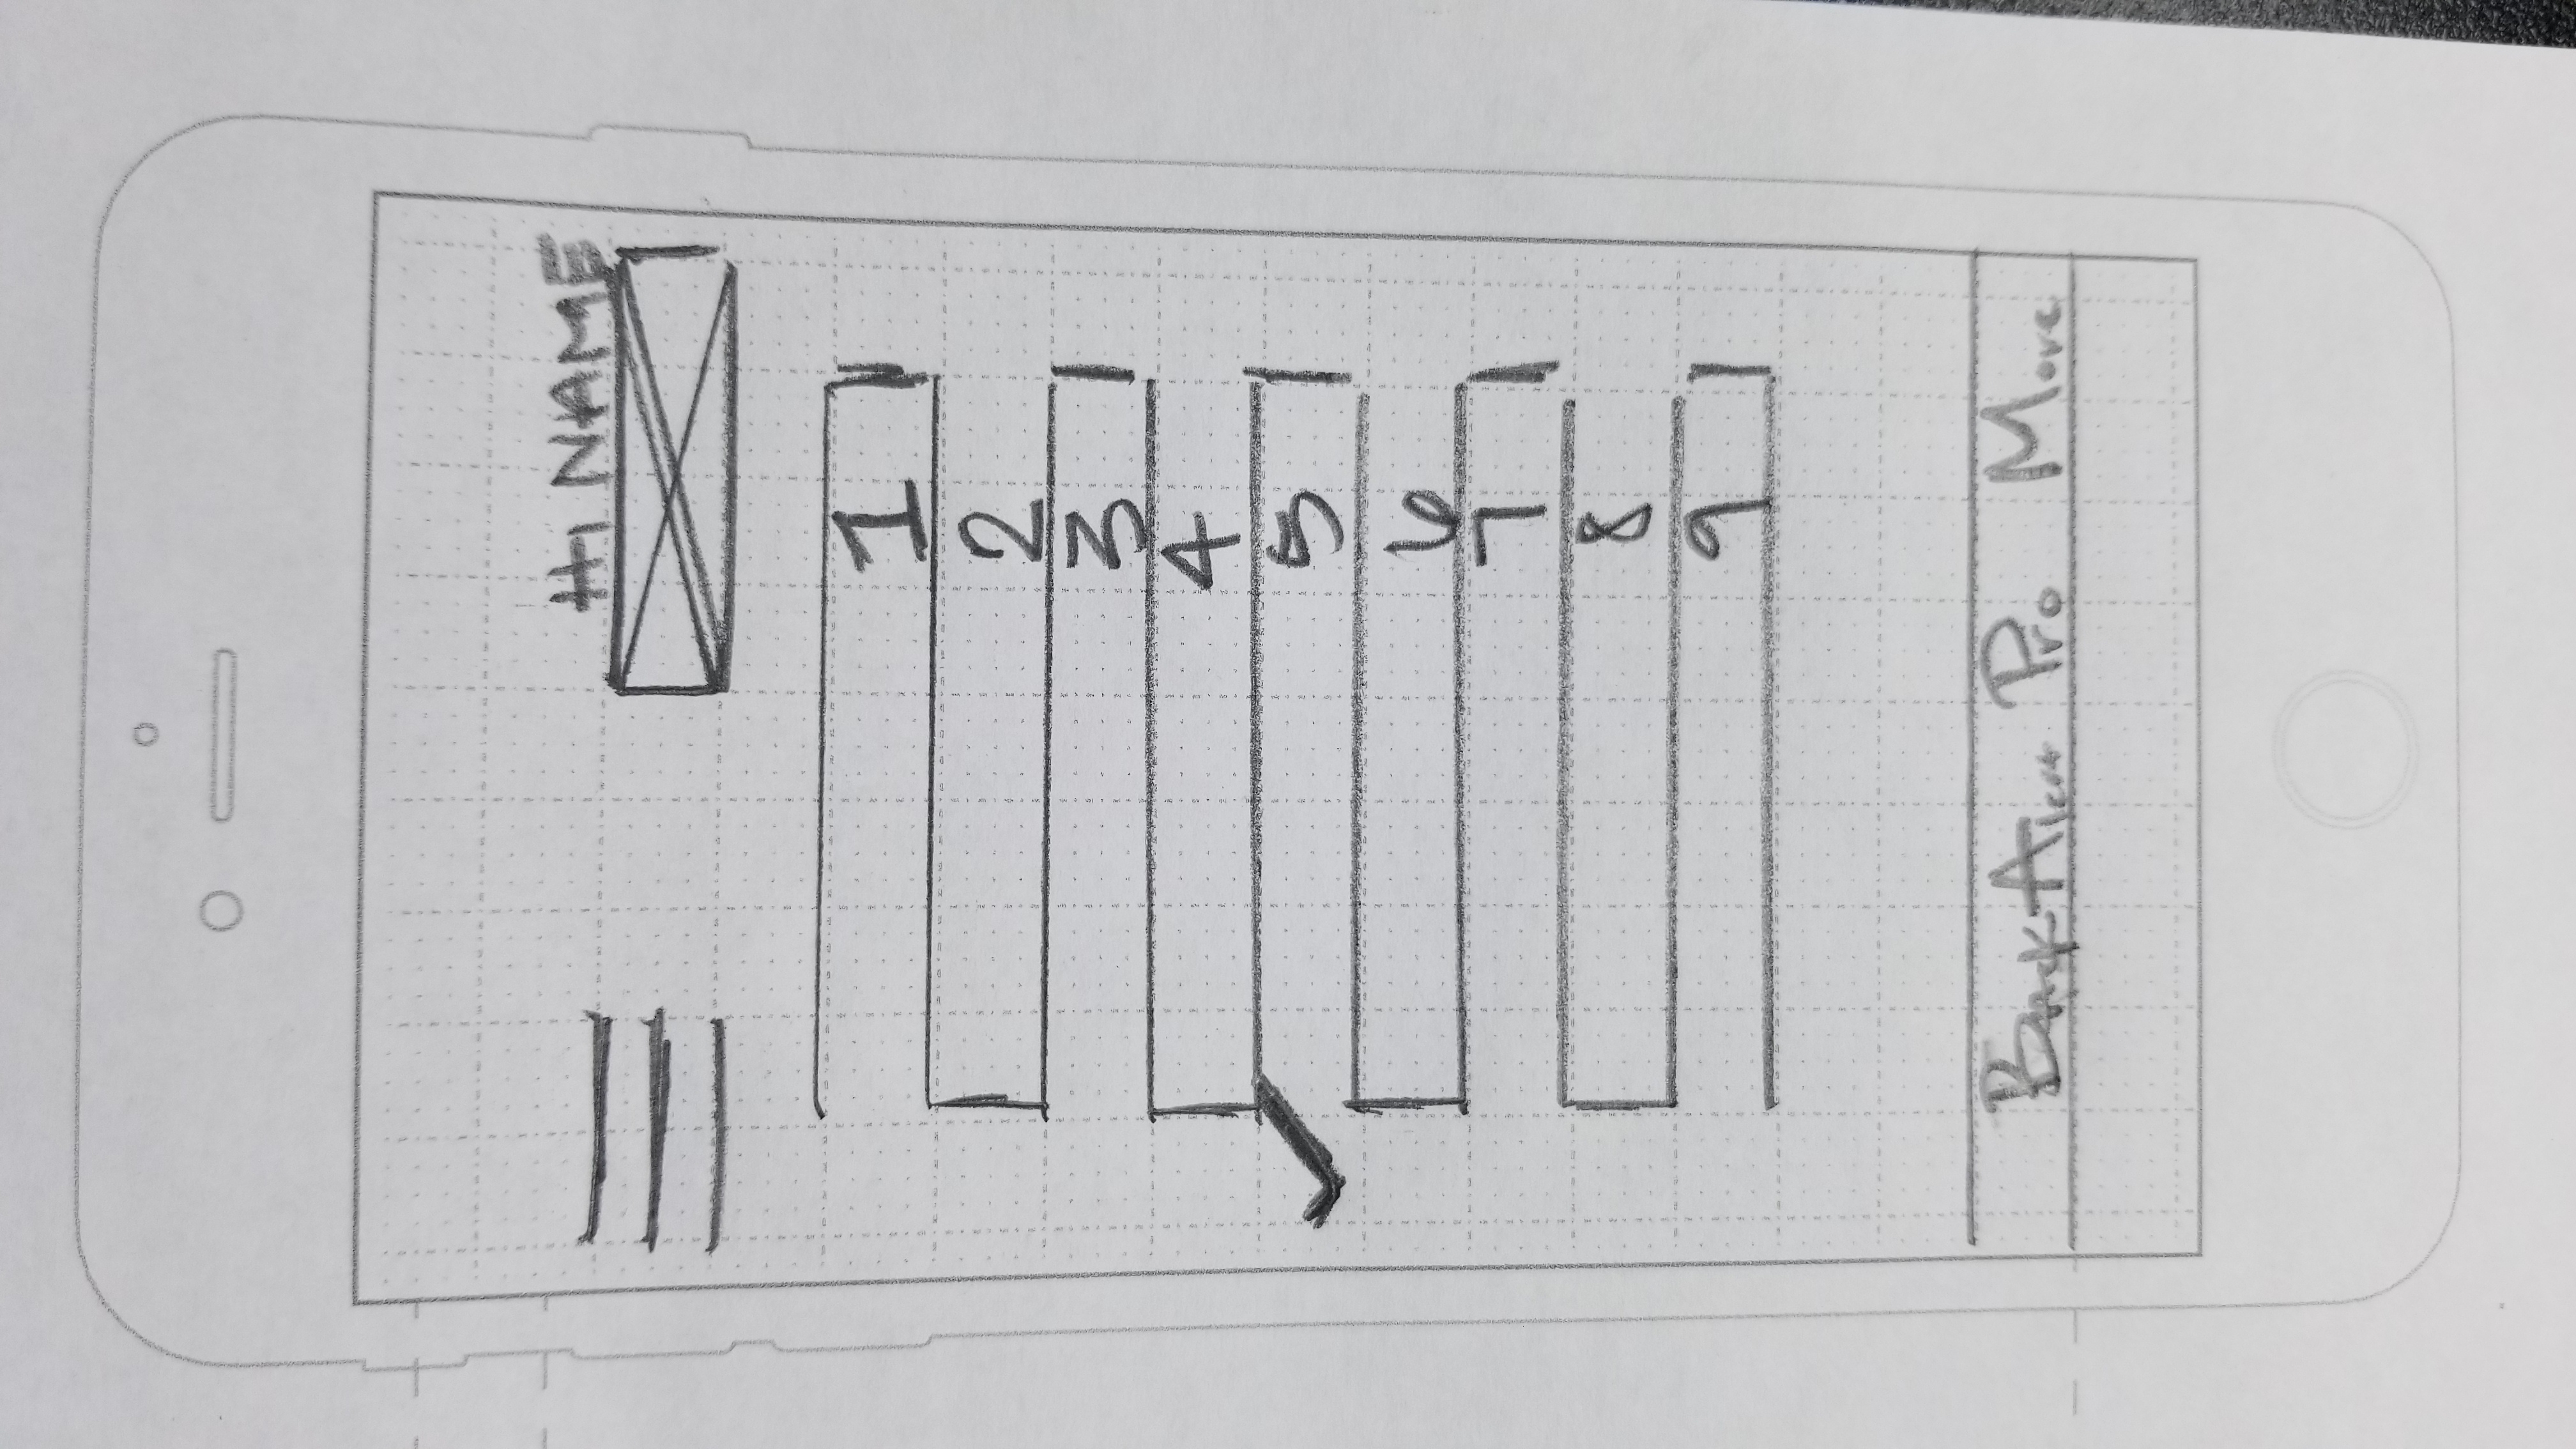 Hi NAME
1
2
3
4
5
6
7
8
9
Back Alert Pro More